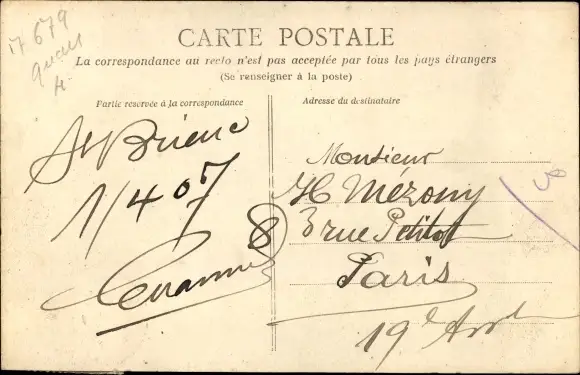 17679
CARTE POSTALE
La correspondance au recto n'est pas acceptée par tous les pays étrangers
(Se renseigner à la poste)
Partie reservée à la correspondance
Adresse du destinataire
St Brieuc
1/4 07
8
Monsieur
H Mézony
3 rue Petitot
Paris
19e Arrdt